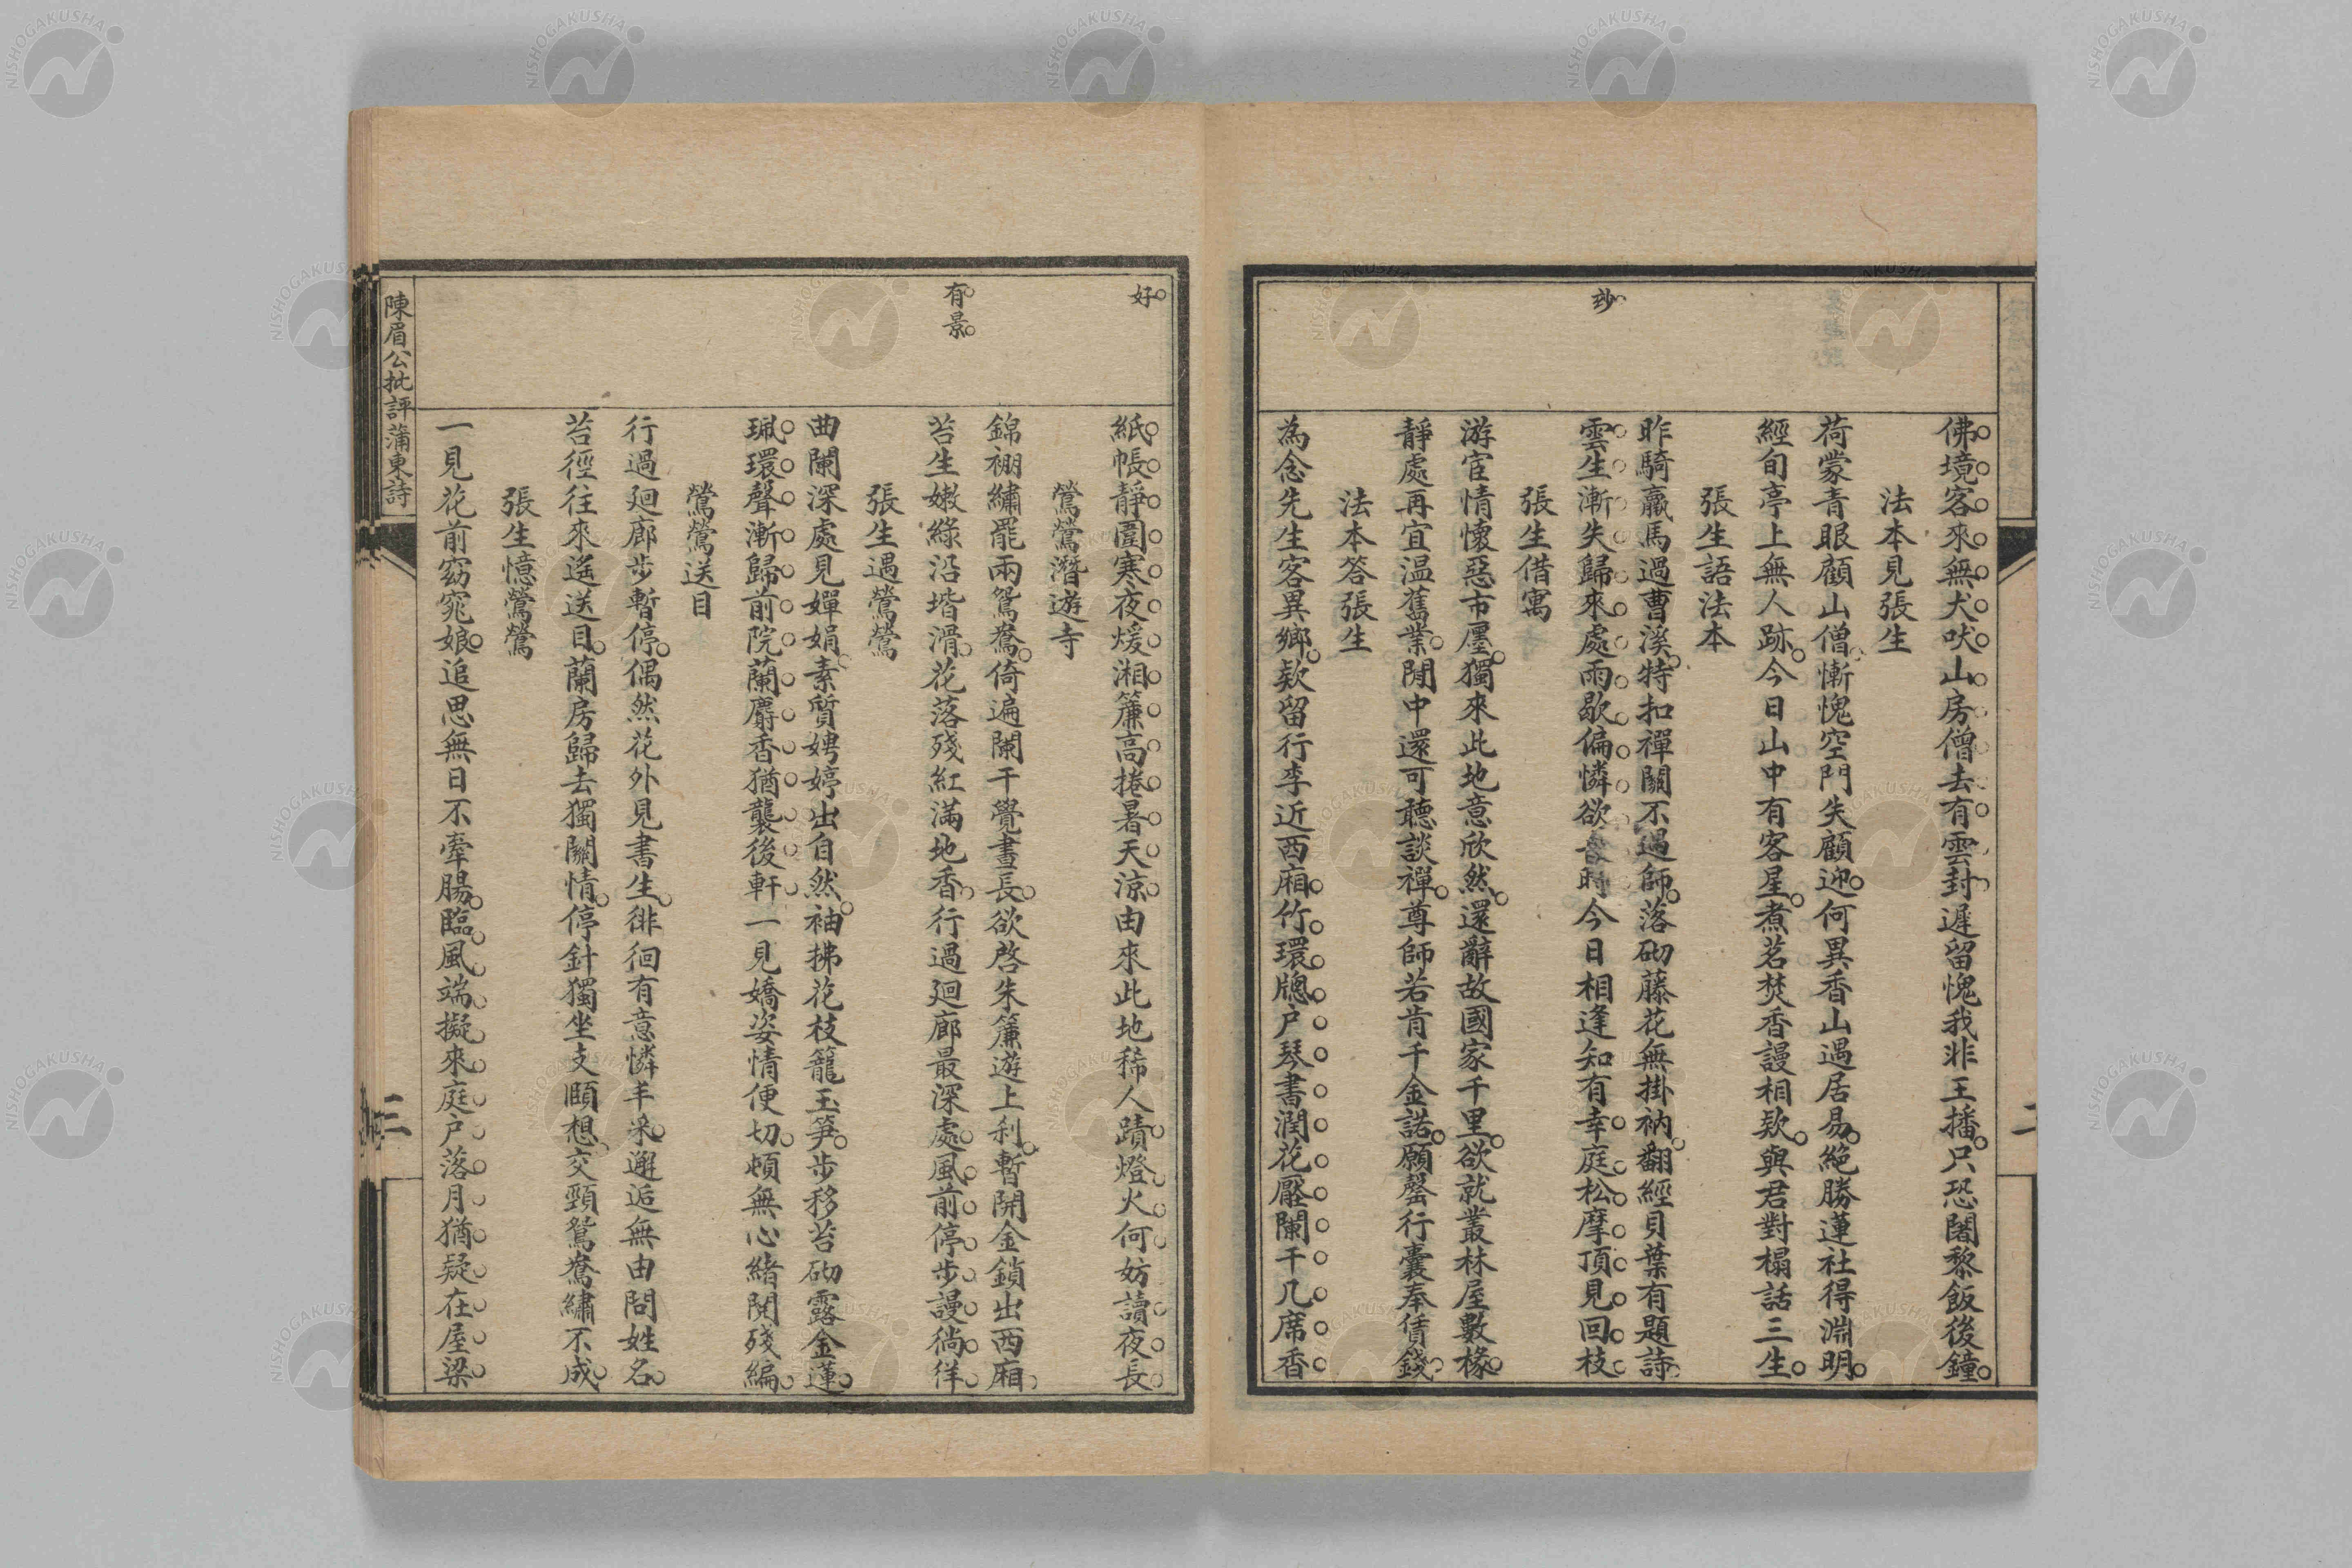 二
妙
佛境客來無犬吠山房僧去有雲封遲留愧我非王播只恐闍黎飯後鐘
法本見張生
荷蒙青眼顧山僧慚愧空門失顧迎何異香山遇居易絕勝蓮社得淵明
經旬亭上無人跡今日山中有客星煮茗焚香謾相欵與君對榻話三生
張生語法本
昨騎羸馬過曹溪特扣禪關不遇師落砌藤花無掛衲翻經貝葉有題詩
雲生漸失歸來處雨歇偏憐欲時今日相逢知有幸庭松摩頂見回枝
張生借寓
游宦情懷惡市廛獨來此地意欣然還辭故國家千里欲就叢林屋數椽
靜處再宜温舊業閒中還可聽談禪尊師若肯千金諾願罄行囊奉賃錢
法本答張生
為念先生客異鄉欵留行李近西廂竹環牕户琴書潤花壓闌干几席香
好
有景
紙帳靜圍寒夜煖湘簾高捲暑天涼由來此地稀人蹟燈火何妨讀夜長
鶯鶯潛遊寺
錦棚繡罷兩鴛鴦倚遍闌干覺晝長欲啓朱簾遊上利暫開金鎖出西廂
苔生嫩綠沿堦滑花落殘紅滿地香行過廻廊最深處風前停步謾徜徉
張生遇鶯鶯
曲闌深處見嬋娟素質娉婷出自然袖拂花枝籠玉笋步移苔砌露金蓮
珮環聲漸歸前院蘭麝香猶襲後軒一見嬌姿情便切頓無心緒閱殘編
鶯鶯送目
行過廻廊步暫停偶然花外見書生徘徊有意憐丰采邂逅無由問姓名
苔徑往來遙送目蘭房歸去獨關情停針獨坐支頤想交頸鴛鴦繡不成
張生憶鶯鶯
一見花前窈窕娘追思無日不牽腸臨風端擬來庭户落月猶疑在屋梁
陳眉公批評蒲東詩
三
NISHOGAKUSHA